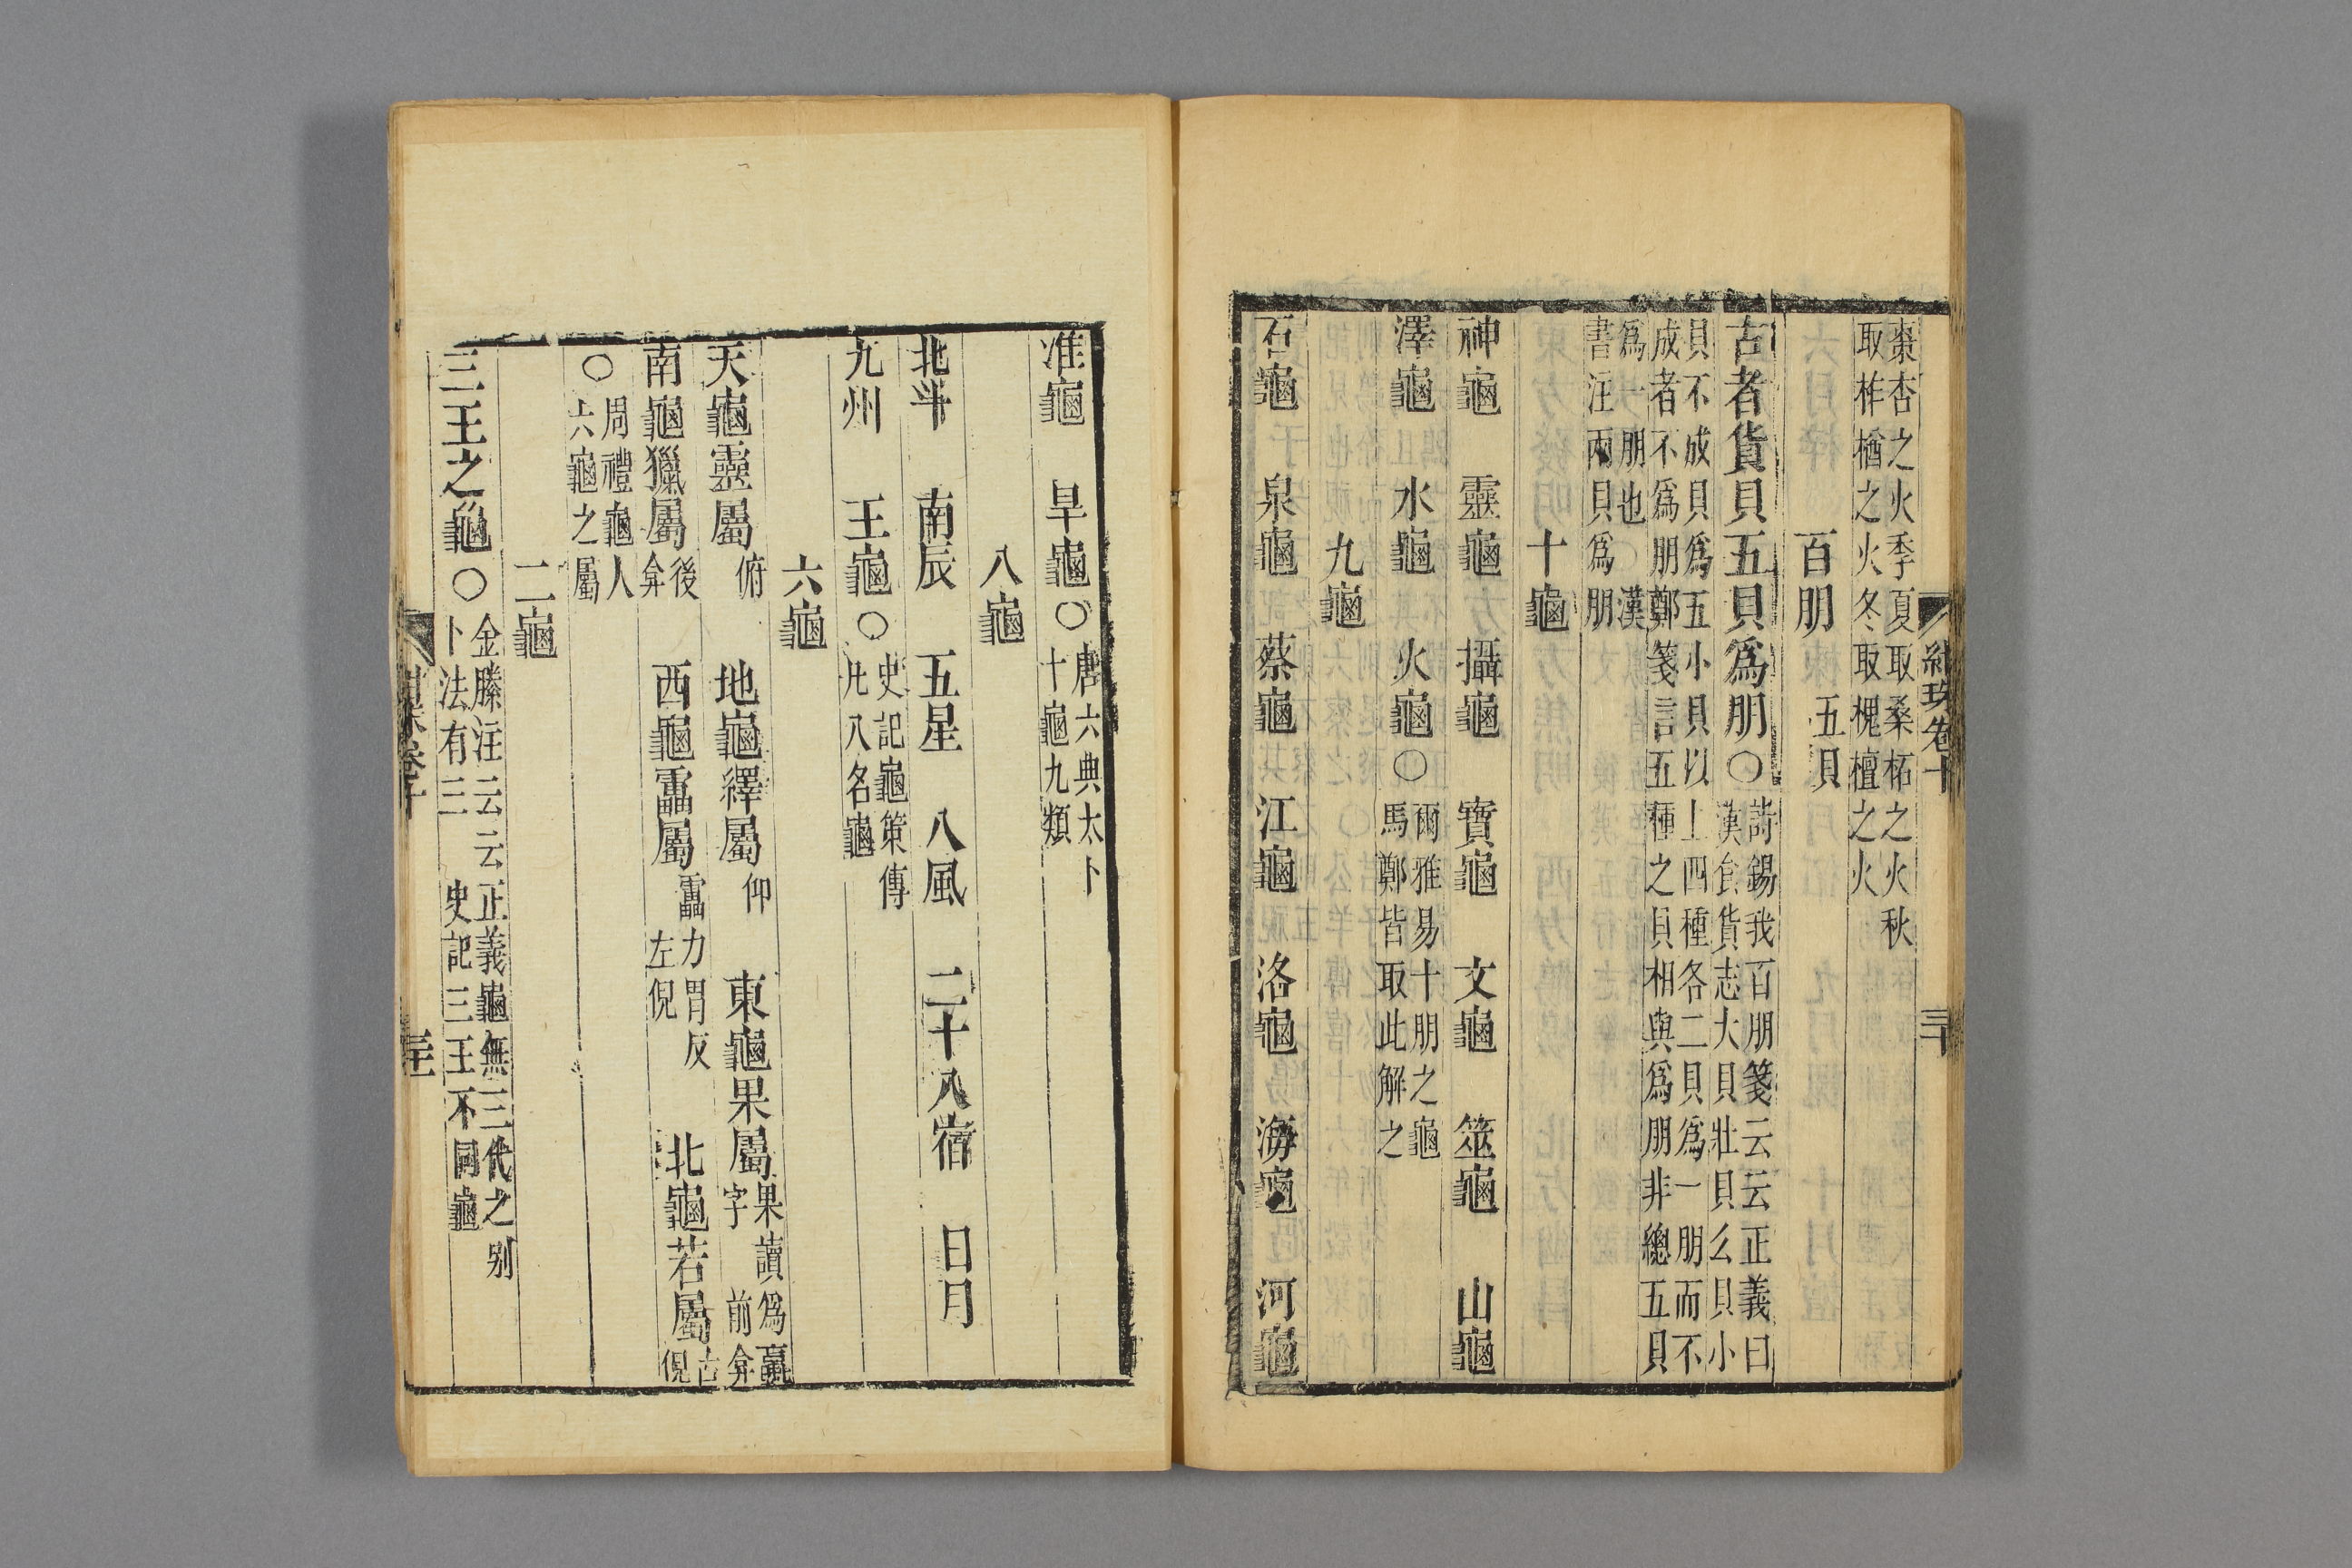 棗杏之火季夏取桑柘之火秋
取柞楢之火冬取槐檀之火
百朋 五貝
古者貨貝五貝爲朋○詩錫我百朋箋云云正義曰
漢食貨志大貝壯貝么貝小
貝不成貝爲五小貝以上四種各二貝爲一朋而不
成者不爲朋鄭箋言五種之貝相與爲朋非總五貝
爲一朋也 漢
書注兩貝爲朋
十龜
神龜 靈龜 攝龜 寶龜 文龜 筮龜 山龜
澤龜 水龜 火龜○爾雅易十朋之龜
馬鄭皆取此解之
九龜
石龜 泉龜 蔡龜 江龜 洛龜 海龜 河龜
紺珠卷十
三十
淮龜 旱龜○唐六典太卜
十龜九類
八龜
北斗 南辰 五星 八風 二十八宿 日月
九州 王龜○史記龜策傳
凡八名龜
六龜
天龜靈屬俯 地龜繹屬仰 東龜果屬果讀爲臝
字 前弇
南龜獵屬後
弇 西龜靁屬靁力胃反
左倪 北龜若屬右
倪
○周禮龜人
六龜之屬
二龜
三王之龜○金縢注云云正義龜無三代之别
卜法有三 史記三王不同龜